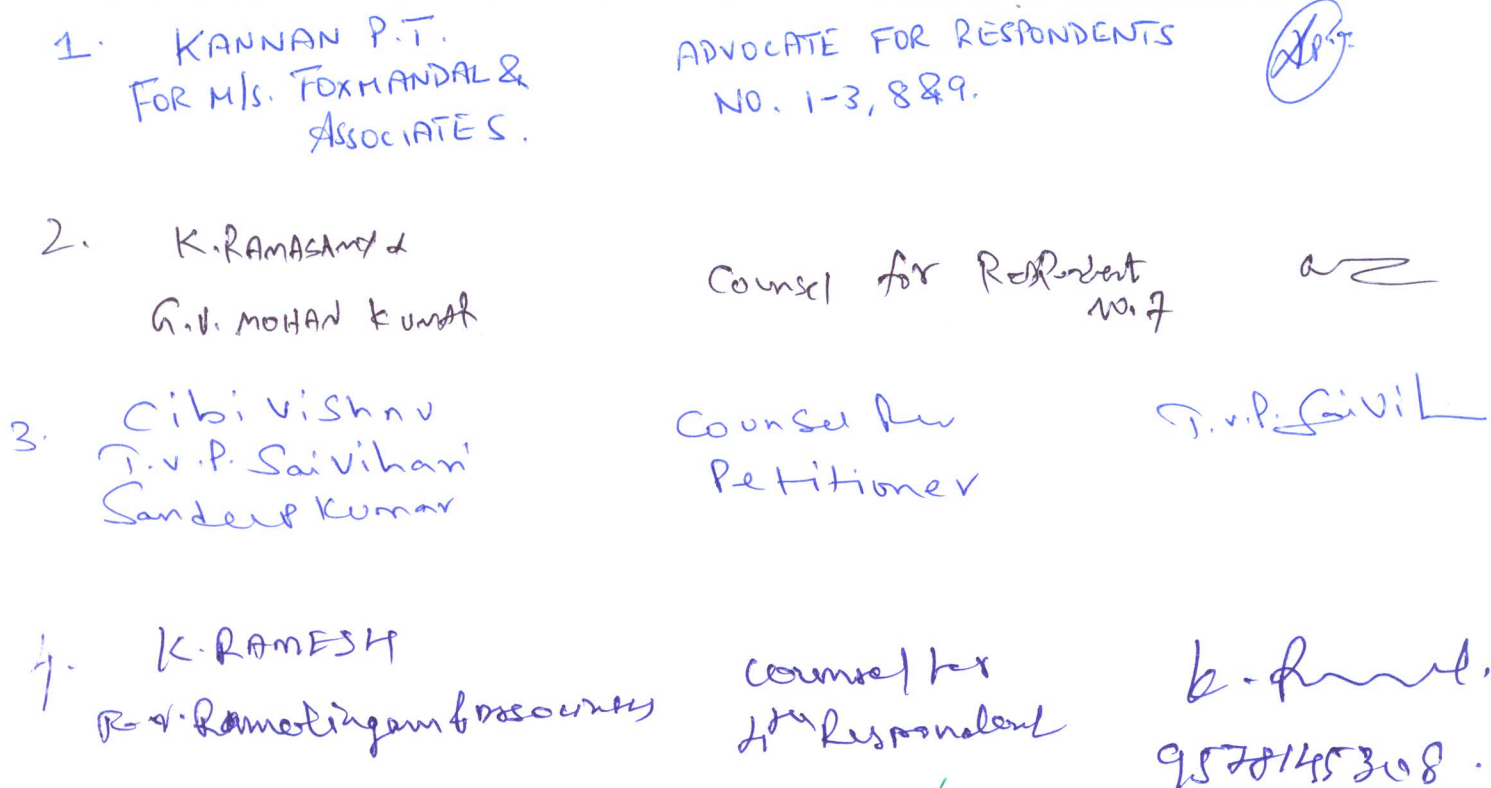 1. KANNAN P.T.
FOR M/s. FOXMANDAL &
ASSOCIATES.
ADVOCATE FOR RESPONDENTS
NO. 1-3, 8&9.
2. K.RAMASAMY &
G.V. MOHAN KUMAR
Counsel for Respondent
no. 7
3. Cibi Vishnu
T.V.P. Saivihari
Sandeep Kumar
Counsel for
Petitioner
T.V.P.
4. K.RAMESH
Ramalingam & Associates
counsel for
4th Respondent